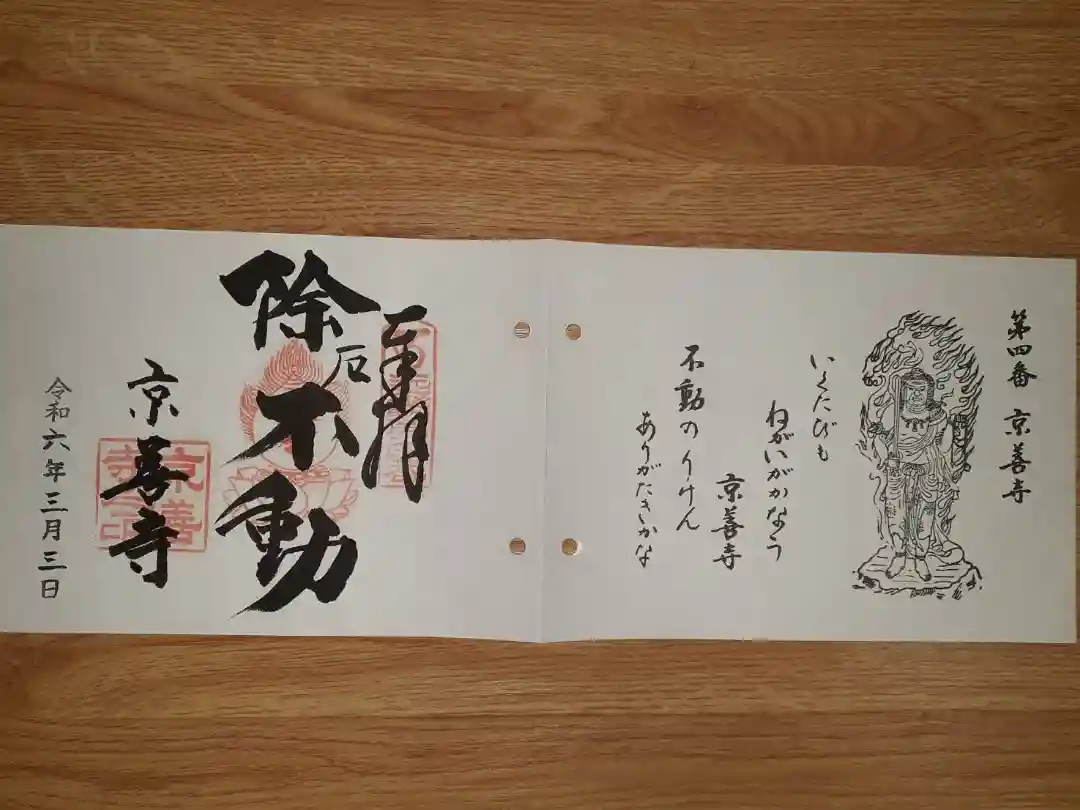 第四番 京善寺
いくたびも
ねがいがかなう
京善寺
不動のりけん
ありがたきかな
奉拝
除厄不動
京善寺
京善寺印
令和六年三月三日